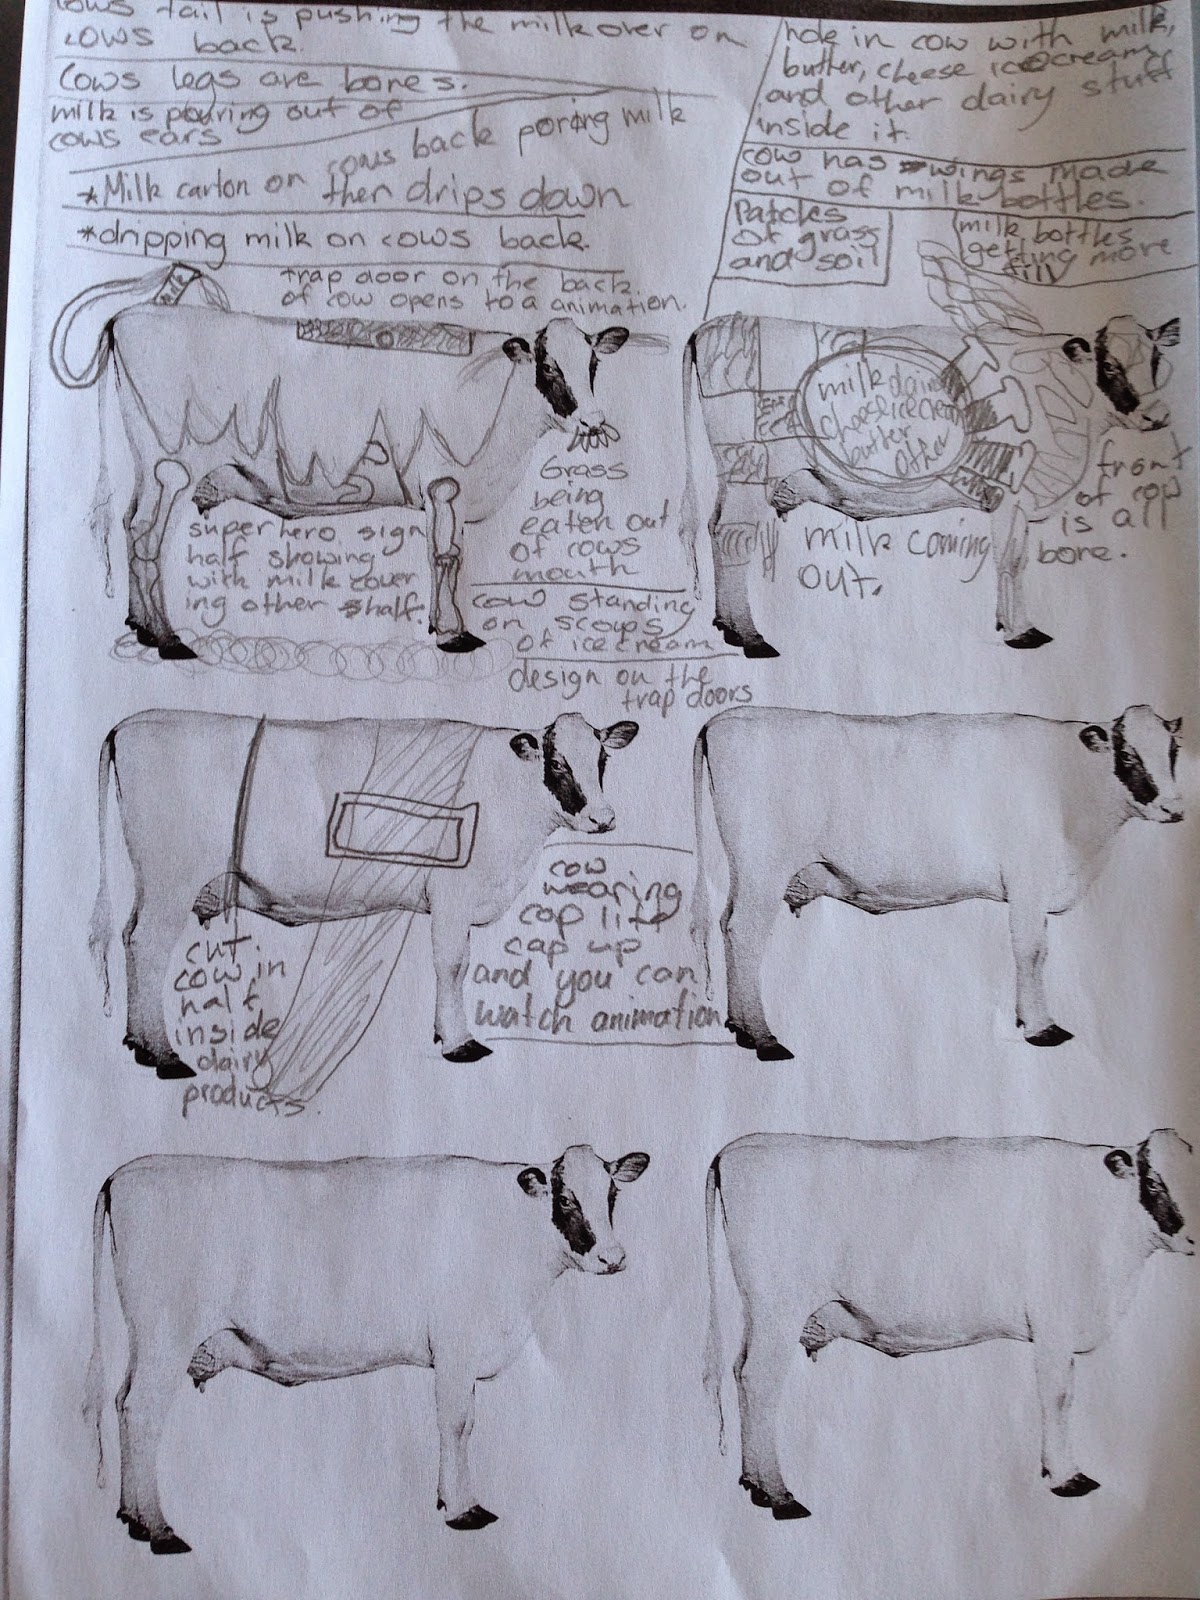 cows tail is pushing the milk over on
cows back.
Cows legs are bones.
milk is pouring out of
cows ears
*Milk carton on cows back poring milk
ther drips down
*dripping milk on cows back.
trap door on the back
of cow opens to a animation.
milk
superhero sign
half showing
with milk cover
ing other half.
Grass
being
eaten out
of cows
mouth
cow standing
on scoups
of icecream
design on the
trap doors
hole in cow with milk,
butter, cheese icecream
and other dairy stuff
inside it.
cow has wings made
out of milk bottles.
Patches
of grass
and soil
milk bottles
getting more
fill
milk dairy
cheese icecream
butter
other
milk coming
out.
front
of cow
is all
bone.
cut
cow in
half
inside
dairy
products.
cow
wearing
cap lift
cap up
and you can
watch animation